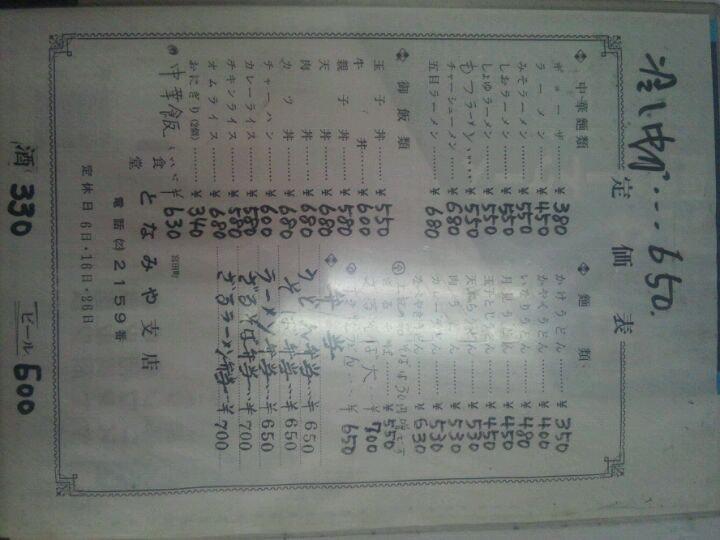 冷し中华…650.
定価表
中華麵類
ギョーザ……¥380
ラーメン……¥450
みそラーメン……¥550
しおラーメン……¥550
しょゆラーメン……¥550
もつラーメン……¥550
チャーシューメン……¥680
五目ラーメン……¥680
御飯類
玉子丼……¥550
牛丼……¥600
親子丼……¥580
天丼……¥680
肉丼……¥680
カツ丼……¥680
チャーハン……¥600
カレーライス……¥580
チキンライス……¥580
オムライス……¥680
おにぎり(2個)……¥340
中華飯……¥630
麵類
かけうどん……¥350
¥400
いなりうどん……¥480
月見うどん……¥450
玉子とじうどん……¥450
天ぷらうどん……¥530
肉うどん……¥530
カレーうどん……¥530
なべやきうどん……¥630
¥550
大 ¥700
¥650
弁当
¥650
弁当……¥650
ラーメン弁当……¥650
ざるそば弁当……¥700
ざるラーメン弁当……¥700
宮田町
食堂 となみや支店
電話(22)2159番
定休日 6日・16日・26日
酒 330 ビール 600